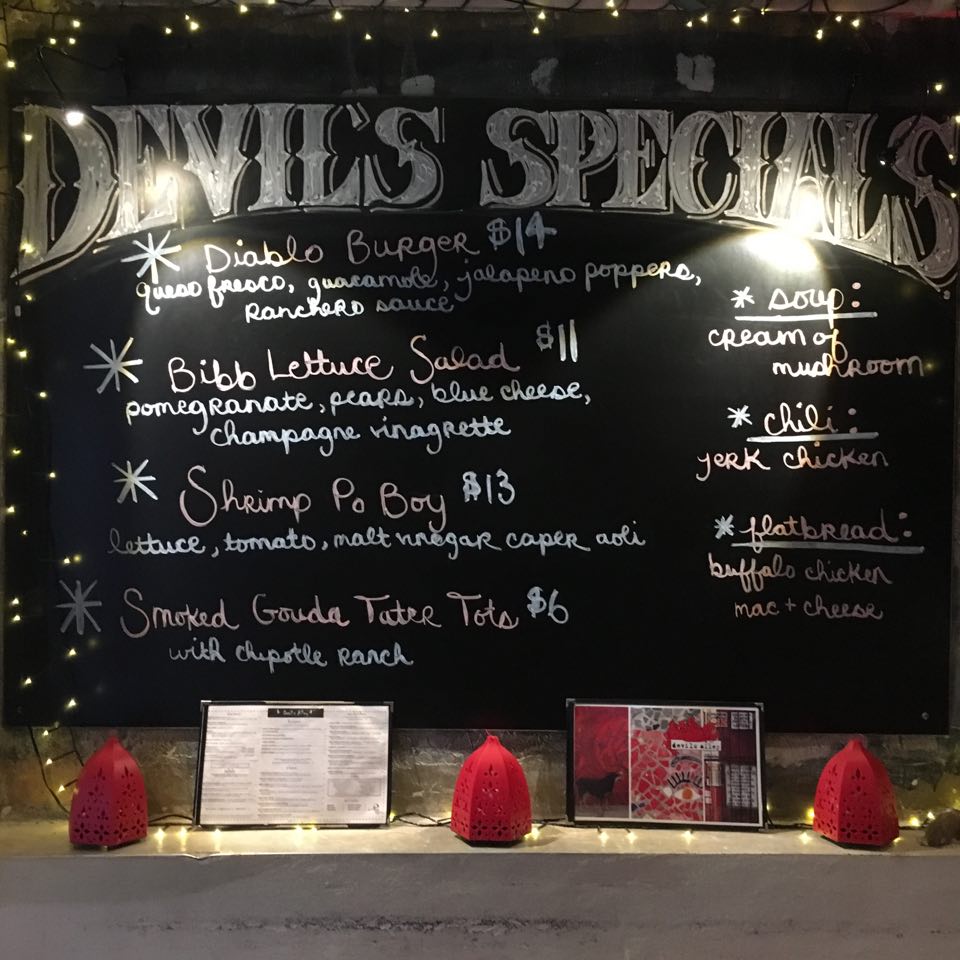 DEVIL'S SPECIALS
Diablo Burger $14
queso fresco, guacamole, jalapeno poppers,
Ranchero sauce
Bibb Lettuce Salad $11
pomegranate, pears, blue cheese,
champagne vinagrette
Shrimp Po Boy $13
lettuce, tomato, malt vinegar caper aoli
Smoked Gouda Tater Tots $6
with chipotle ranch
* soup:
cream of
mushroom
* chili:
jerk chicken
* flatbread:
buffalo chicken
mac + cheese
devils alley